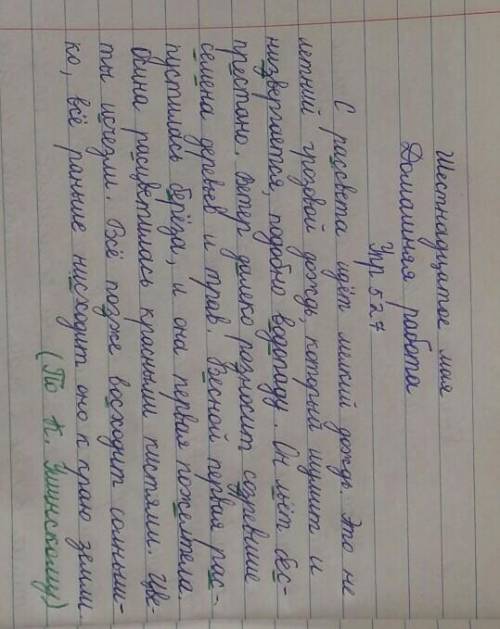 Шестнадцатое мая
Домашняя работа
Упр. 527
С рассвета идёт мелкий дождь. Это не
летний грозовой дождь, который шумит и
низвергается, подобно водопаду. Он льёт бес-
престано. Ветер далеко разносит созревшие
семена деревьев и трав. Весной первая рас-
пустилась берёза, и она первая пожелтела.
бина расцветилась красными кистями. Цве-
ты исчезли. Всё позже восходит солныш-
ко, всё ранние нисходит оно к краю земли
(По К. Ушинскому)